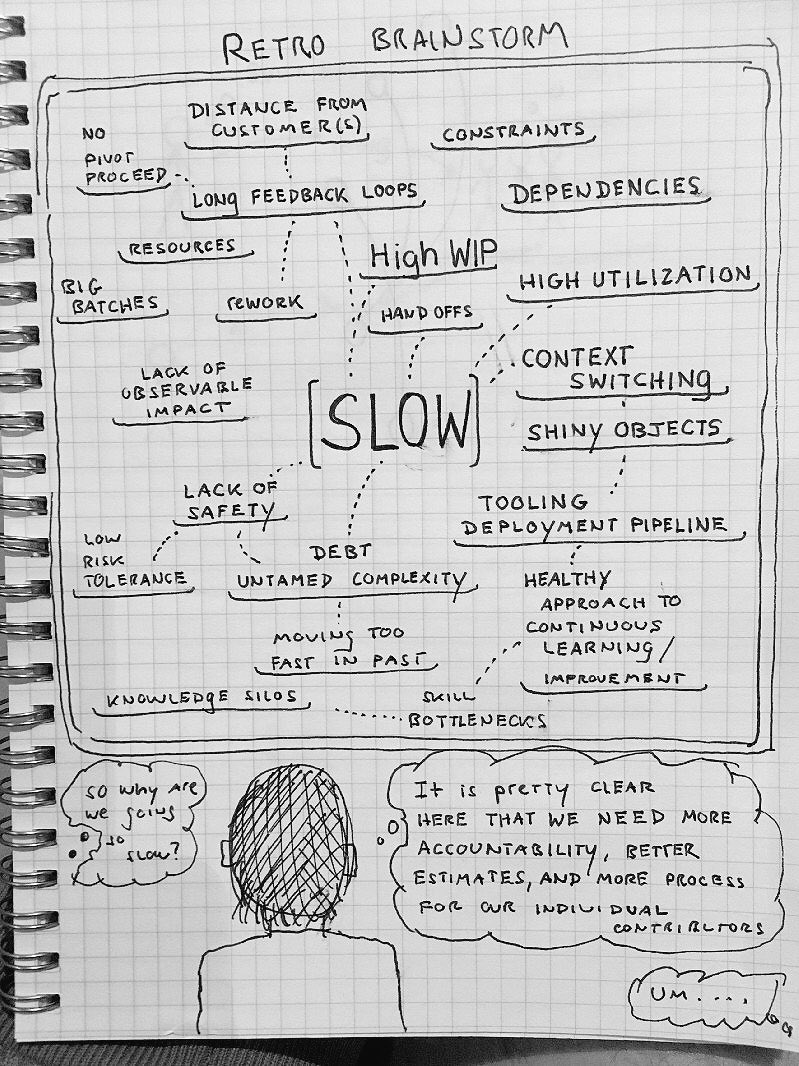 RETRO BRAINSTORM
DISTANCE FROM
CUSTOMER(S)
CONSTRAINTS
NO
PIVOT
PROCEED
LONG FEEDBACK LOOPS
DEPENDENCIES
RESOURCES
High WIP
HIGH UTILIZATION
BIG
BATCHES
rework
HAND OFFS
LACK OF
OBSERVABLE
IMPACT
[SLOW]
CONTEXT
SWITCHING
SHINY OBJECTS
LACK OF
SAFETY
TOOLING
DEPLOYMENT PIPELINE
LOW
RISK
TOLERANCE
DEBT
UNTAMED COMPLEXITY
HEALTHY
APPROACH TO
CONTINUOUS
LEARNING/
IMPROVEMENT
MOVING TOO
FAST IN PAST
KNOWLEDGE SILOS
SKILL
BOTTLENECKS
SO WHY ARE
WE GOING
SO
SLOW?
It is pretty CLEAR
HERE THAT WE NEED MORE
ACCOUNTABILITY, BETTER
ESTIMATES, AND MORE PROCESS
FOR OUR INDIVIDUAL
CONTRIBUTORS
UM....,